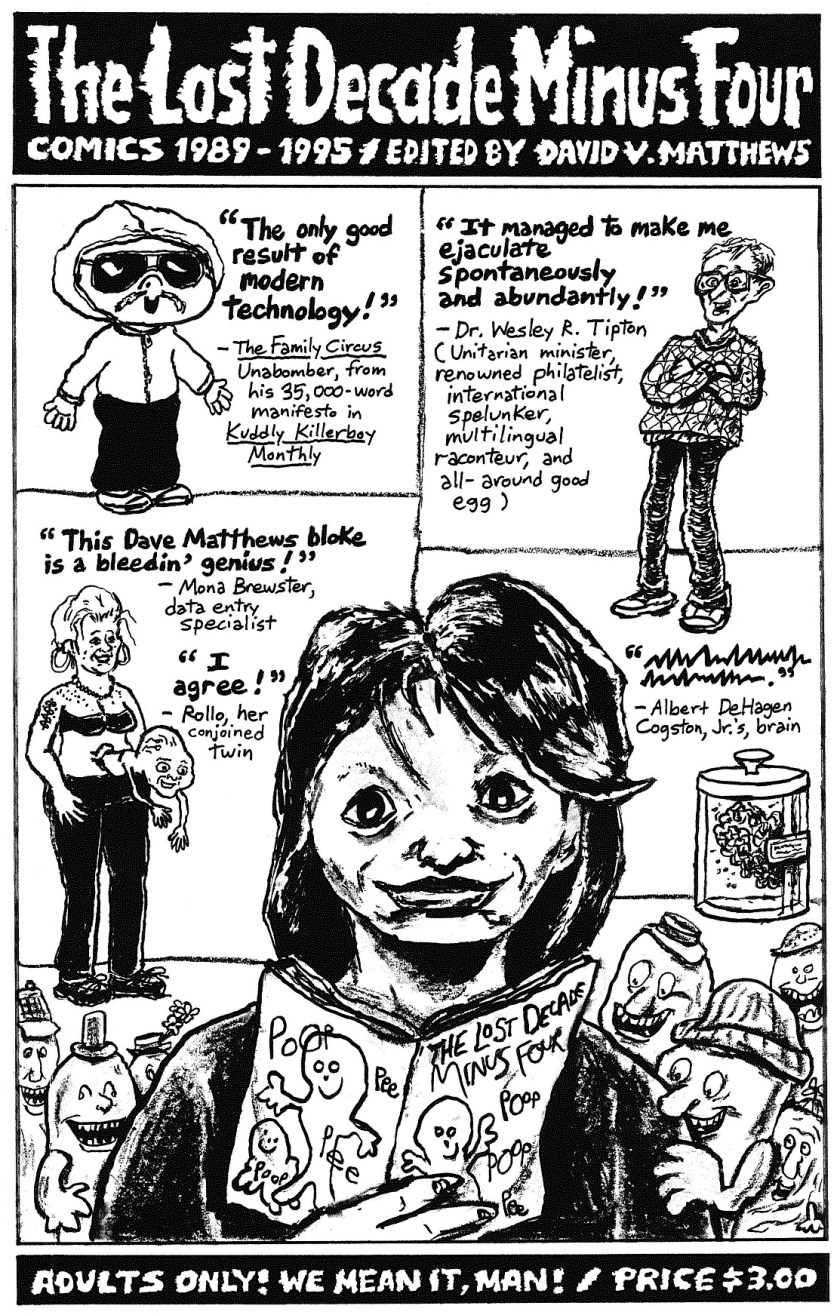 The Lost Decade Minus Four
COMICS 1989-1995 / EDITED BY DAVID V. MATTHEWS
"The only good
result of
modern
technology!"
- The Family Circus
Unabomber, from
his 35,000-word
manifesto in
Kuddly Killerboy
Monthly
"It managed to make me
ejaculate
spontaneously
and abundantly!"
- Dr. Wesley R. Tipton
(Unitarian minister,
renowned philatelist,
international
spelunker,
multilingual
raconteur, and
all-around good
egg)
"This Dave Matthews bloke
is a bleedin' genius!"
- Mona Brewster,
data entry
specialist
"I
agree!"
- Rollo, her
conjoined
twin
- Albert DeHagen
Cogston, Jr.'s, brain
POOP
Pee
Pee
POOP
THE LOST DECADE
MINUS FOUR
POOP
POOP
Pee
ADULTS ONLY! WE MEAN IT, MAN! / PRICE $3.00